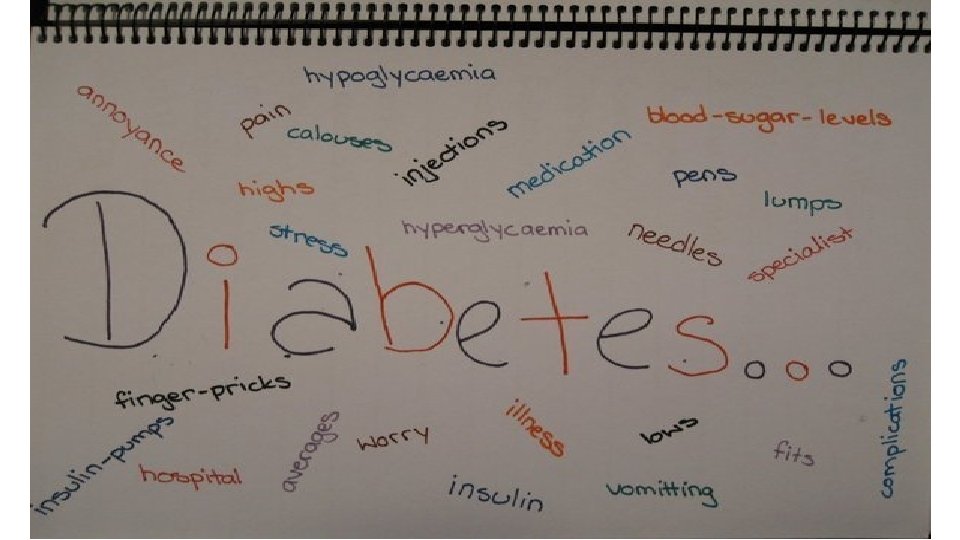 hypoglycaemia
annoyance
pain
calouses
injections
medication
blood-sugar-levels
highs
pens
lumps
stress
hyperglycaemia
needles
specialist
Diabetes...
finger-pricks
insulin-pumps
hospital
averages
worry
illness
lows
fits
complications
insulin
vomitting